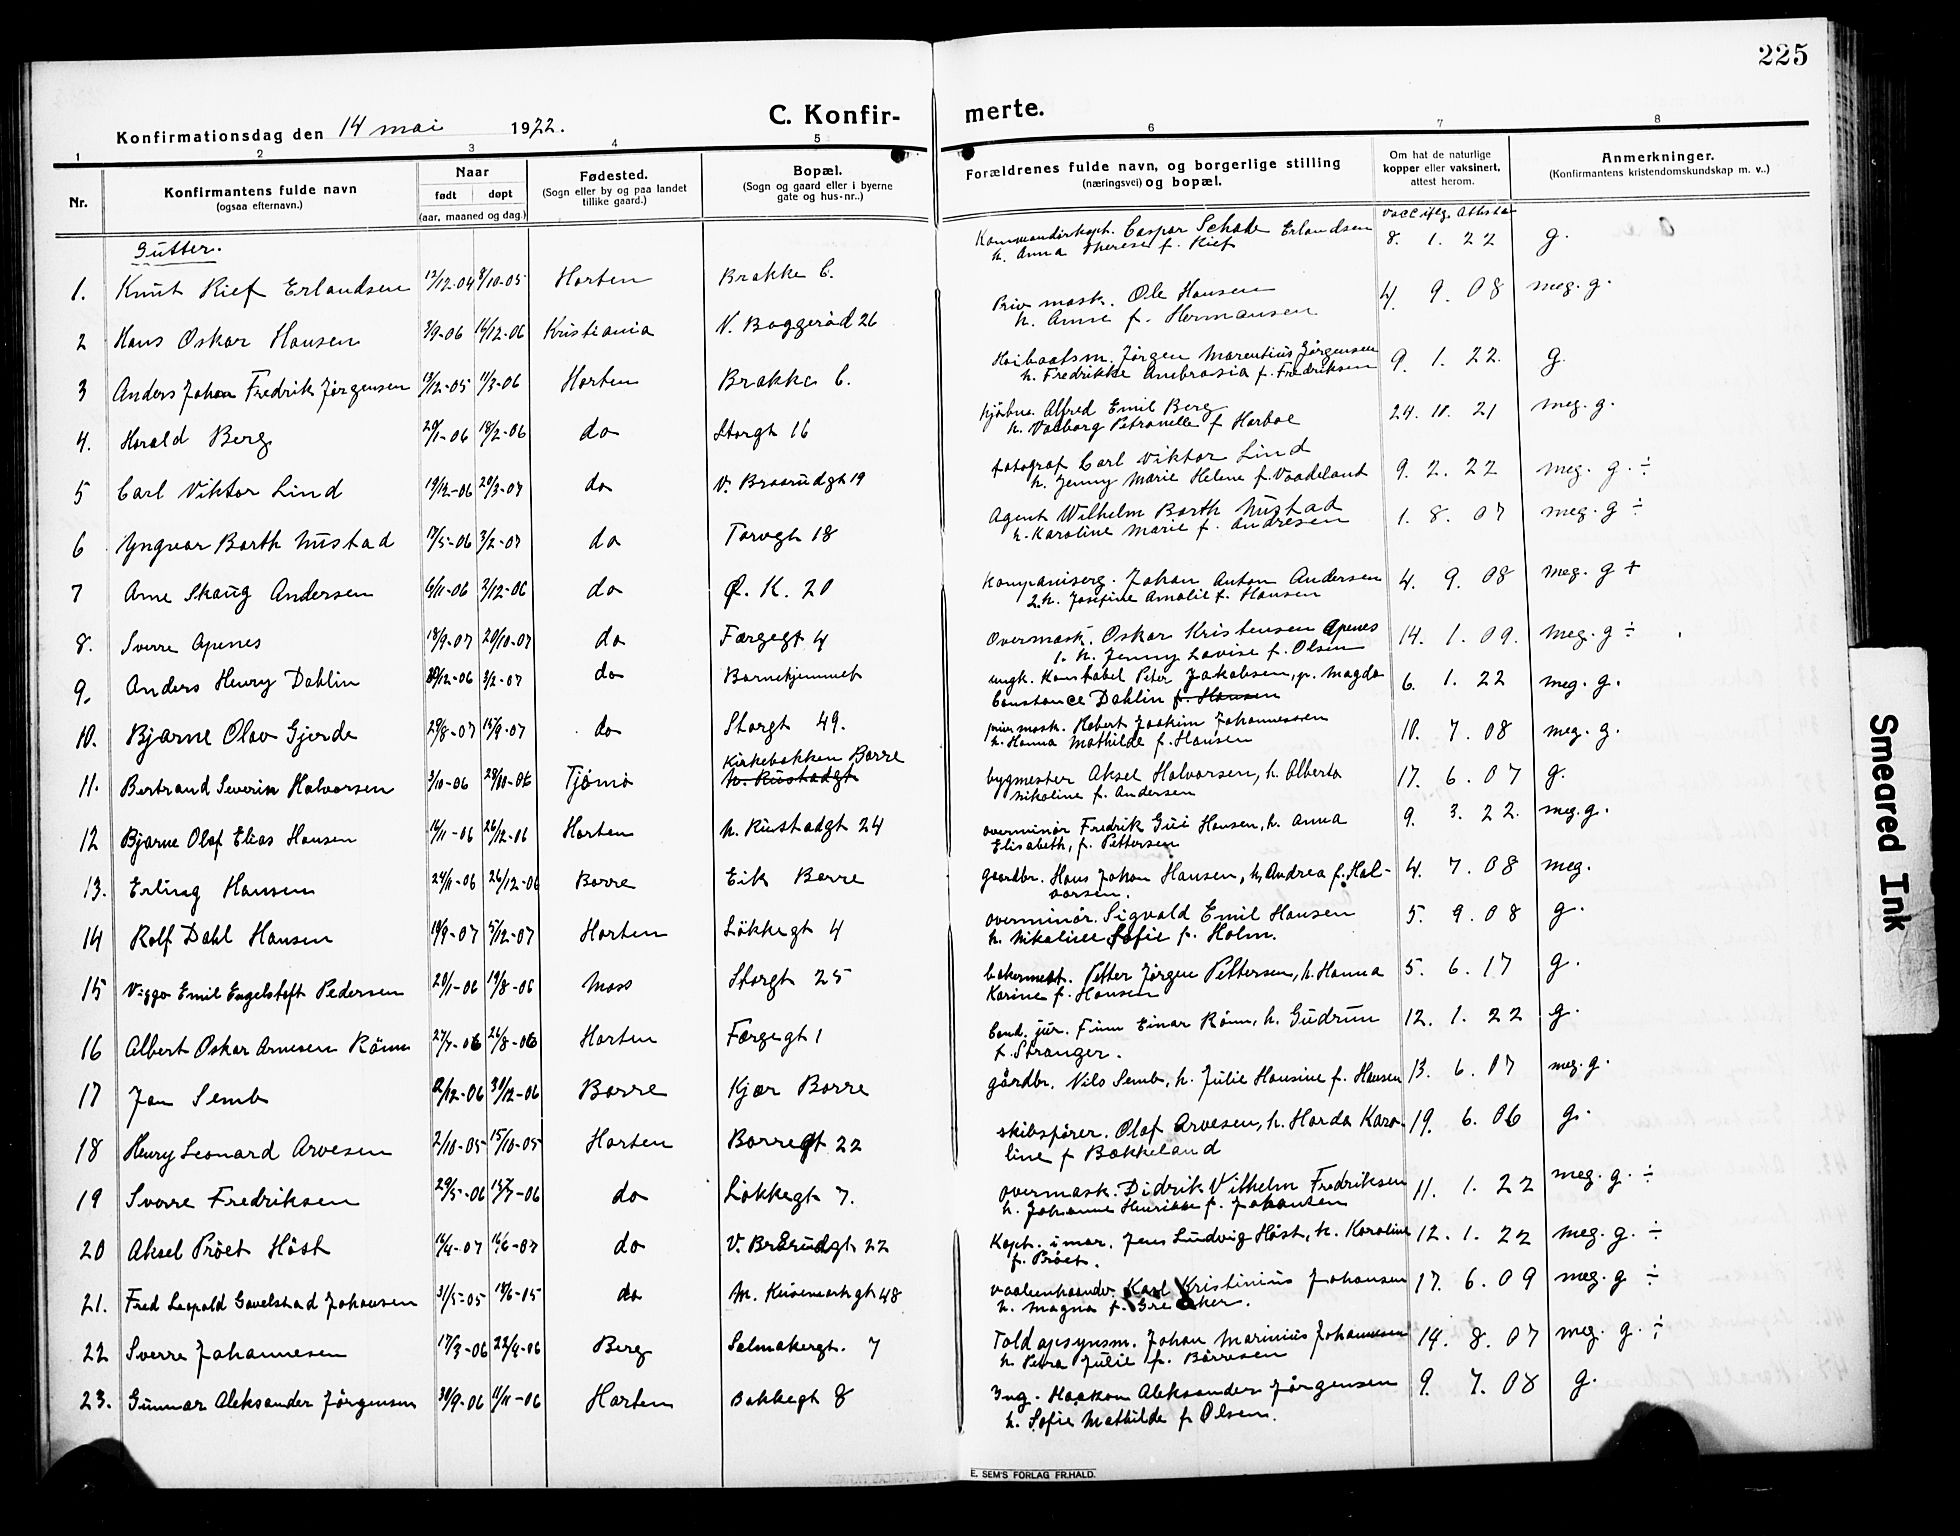 225
Konfirmationsdag den 14 mai 1922.
C. Konfir-
merte.
1 2 3 4 5 6 7 8
Nr.
Konfirmantens fulde navn
(ogsaa efternavn.)
Naar
født døpt
(aar, maaned og dag.)
Fødested.
(Sogn eller by og paa landet
tillike gaard.)
Bopæl.
(Sogn og gaard eller i byerne
gate og hus-nr..)
Forældrenes fulde navn, og borgerlige stilling
(næringsvei) og bopæl.
Om hat de naturlige
kopper eller vaksinert,
attest herom.
Anmerkninger.
(Konfirmantens kristendomskundskap m. v..)
Gutter.
1. Knut Kief Erlandsen 12/12-04 8/10-05 Horten Brakke C. Kommandørkapt. Caspar Schade Erlandsen 8. 1. 22 g.
h. Anna Therese f. Kief
2 Hans Oskar Hansen 3/9-06 16/12-06 Kristiania V. Baggerød 26 Priv mask. Ole Hansen 4. 9. 08 meg. g.
h. Anne f. Hermansen
3 Anders Johan Fredrik Jørgensen 13/12-05 11/3-06 Horten Brakke C. Jørgen Marentius Jørgensen 9. 1. 22. g.
h. Fredrikke Ambrosia f. Fredriksen
4. Harald Berg 20/1-06 18/2-06 do Storgt 16 Alfred Emil Berg 24. 10. 21 meg. g.
h. Valborg Petronelle f Harboe
5 Carl Viktor Lind 19/12-06 20/3-07 do V. Braarudgt 19 fotograf Carl Viktor Lind 9. 2. 22 meg. g. ÷
h. Jenny Marie Helene f. Vaadeland
6 Yngvar Barth Mustad 17/5-06 3/2-07 do Torvgt 18 Agent Wilhelm Barth Mustad 1. 8. 07 meg. g ÷
h. Karoline Marie f. Andresen
7 Arne Skaug Andersen 6/11-06 2/12-06 do Ø. K. 20 Kompaniserg. Johan Anton Andersen 4. 9. 08 meg. g +
2. h. Josefine Amalie f. Hansen
8. Sverre Apenes 18/9-07 20/10-07 do Færgegt 4 Overmask. Oskar Kristensen Apenes 14. 1. 09. meg. g ÷
1. h. Jenny Lovise f. Olsen
9. Anders Henry Dahlin 30/12-06 3/2-07 do Barnehjemmet ungk. Konstabel Peter Jakobsen, p. Magda 6. 1. 22 meg. g.
Constance Dahlin f. Hansen
10. Bjarne Olav Gjerde 29/8-07 15/9-07 do Storgt 49. Robert Joakim Johannessen 10. 7. 08 meg. g.
h. Hanna Mathilde f. Hansen
11. Bertrand Severin Halvorsen 3/10-06 28/10-06 Tjømø Kirkebakken Borre
N. Rustadgt bygmester Aksel Halvorsen, h. Alberta 17. 6. 07 g.
Nikoline f. Andersen
12 Bjarne Olaf Elias Hansen 16/11-06 26/12-06 Horten N. Rustadgt 24 overminør Fredrik Gui Hansen, h. Anna 9. 3. 22. meg. g.
Elisabeth, f. Pettersen
13. Erling Hansen 24/11-06 26/12-06 Borre Eik Borre gaardbr. Hans Johan Hansen, h, Andrea f. Hal- 4. 7. 08 meg.
vorsen.
14 Rolf Dahl Hansen 19/9-07 5/12-07 Horten Løkkegt 4 overminør. Sigvald Emil Hansen 5. 9. 08 g.
h. Nikoline Sofie f. Holm.
15 Viggo Emil Engelstoft Pedersen 20/1-06 19/8-06 Moss Storgt 25 bakermest. Petter Jørgen Pettersen, h. Hanna 5. 6. 17 g.
Karine f. Hansen
16 Albert Oskar Arnesen Rönn 27/7-06 26/8-06 Horten Færgegt 1 Cand. jur. Finn Einar Rönn, h. Gudrun 12. 1. 22 g.
f. Stranger.
17 Jan Semb 2/12-06 30/12-06 Borre Kjær Borre gårdbr. Nils Semb, h. Julie Hansine f. Hansen 13. 6. 07 meg. g.
18 Henry Leonard Arvesen 2/10-05 15/10-05 Horten Borregt 22 skibsfører. Olaf Arvesen, h. Harda Karo- 19. 6. 06 g.
line f Bakkeland
19 Sverre Fredriksen 29/5-06 15/7-06 do Løkkegt 7. overmask. Didrik Vilhelm Fredriksen 11. 1. 22 meg. g. ÷
h. Johanne Henrikke f. Johansen
20 Aksel Pröet Höst 16/4-07 16/6-07 do V. Brårudgt 22 Kapt. i mar. Jens Ludvig Höst, h. Karoline 12. 1. 22 meg. g. ÷
f. Bröet.
21. Fred Leopold Gavelstad Johansen 31/5-05 18/6-05 do Karl Kristinius Johansen 17. 6. 09 meg. g ÷
h. Magna f.
22 Sverre Johannesen 17/3-06 22/4-06 Berg Salmakergt. 7 Told opsynsm. Johan Marinius Johannesen 14. 8. 07 meg. g. ÷
h Petra Julie f. Börresen
23. Gunnar Aleksander Jörgensen 30/9-06 11/11-06 Horten Bakkegt 8 Ing. Haakon Aleksander Jörgensen 9. 7. 08 g.
h. Sofie Mathilde f. Olsen.
E. SEM'S FORLAG FR.HALD.
Smeared Ink